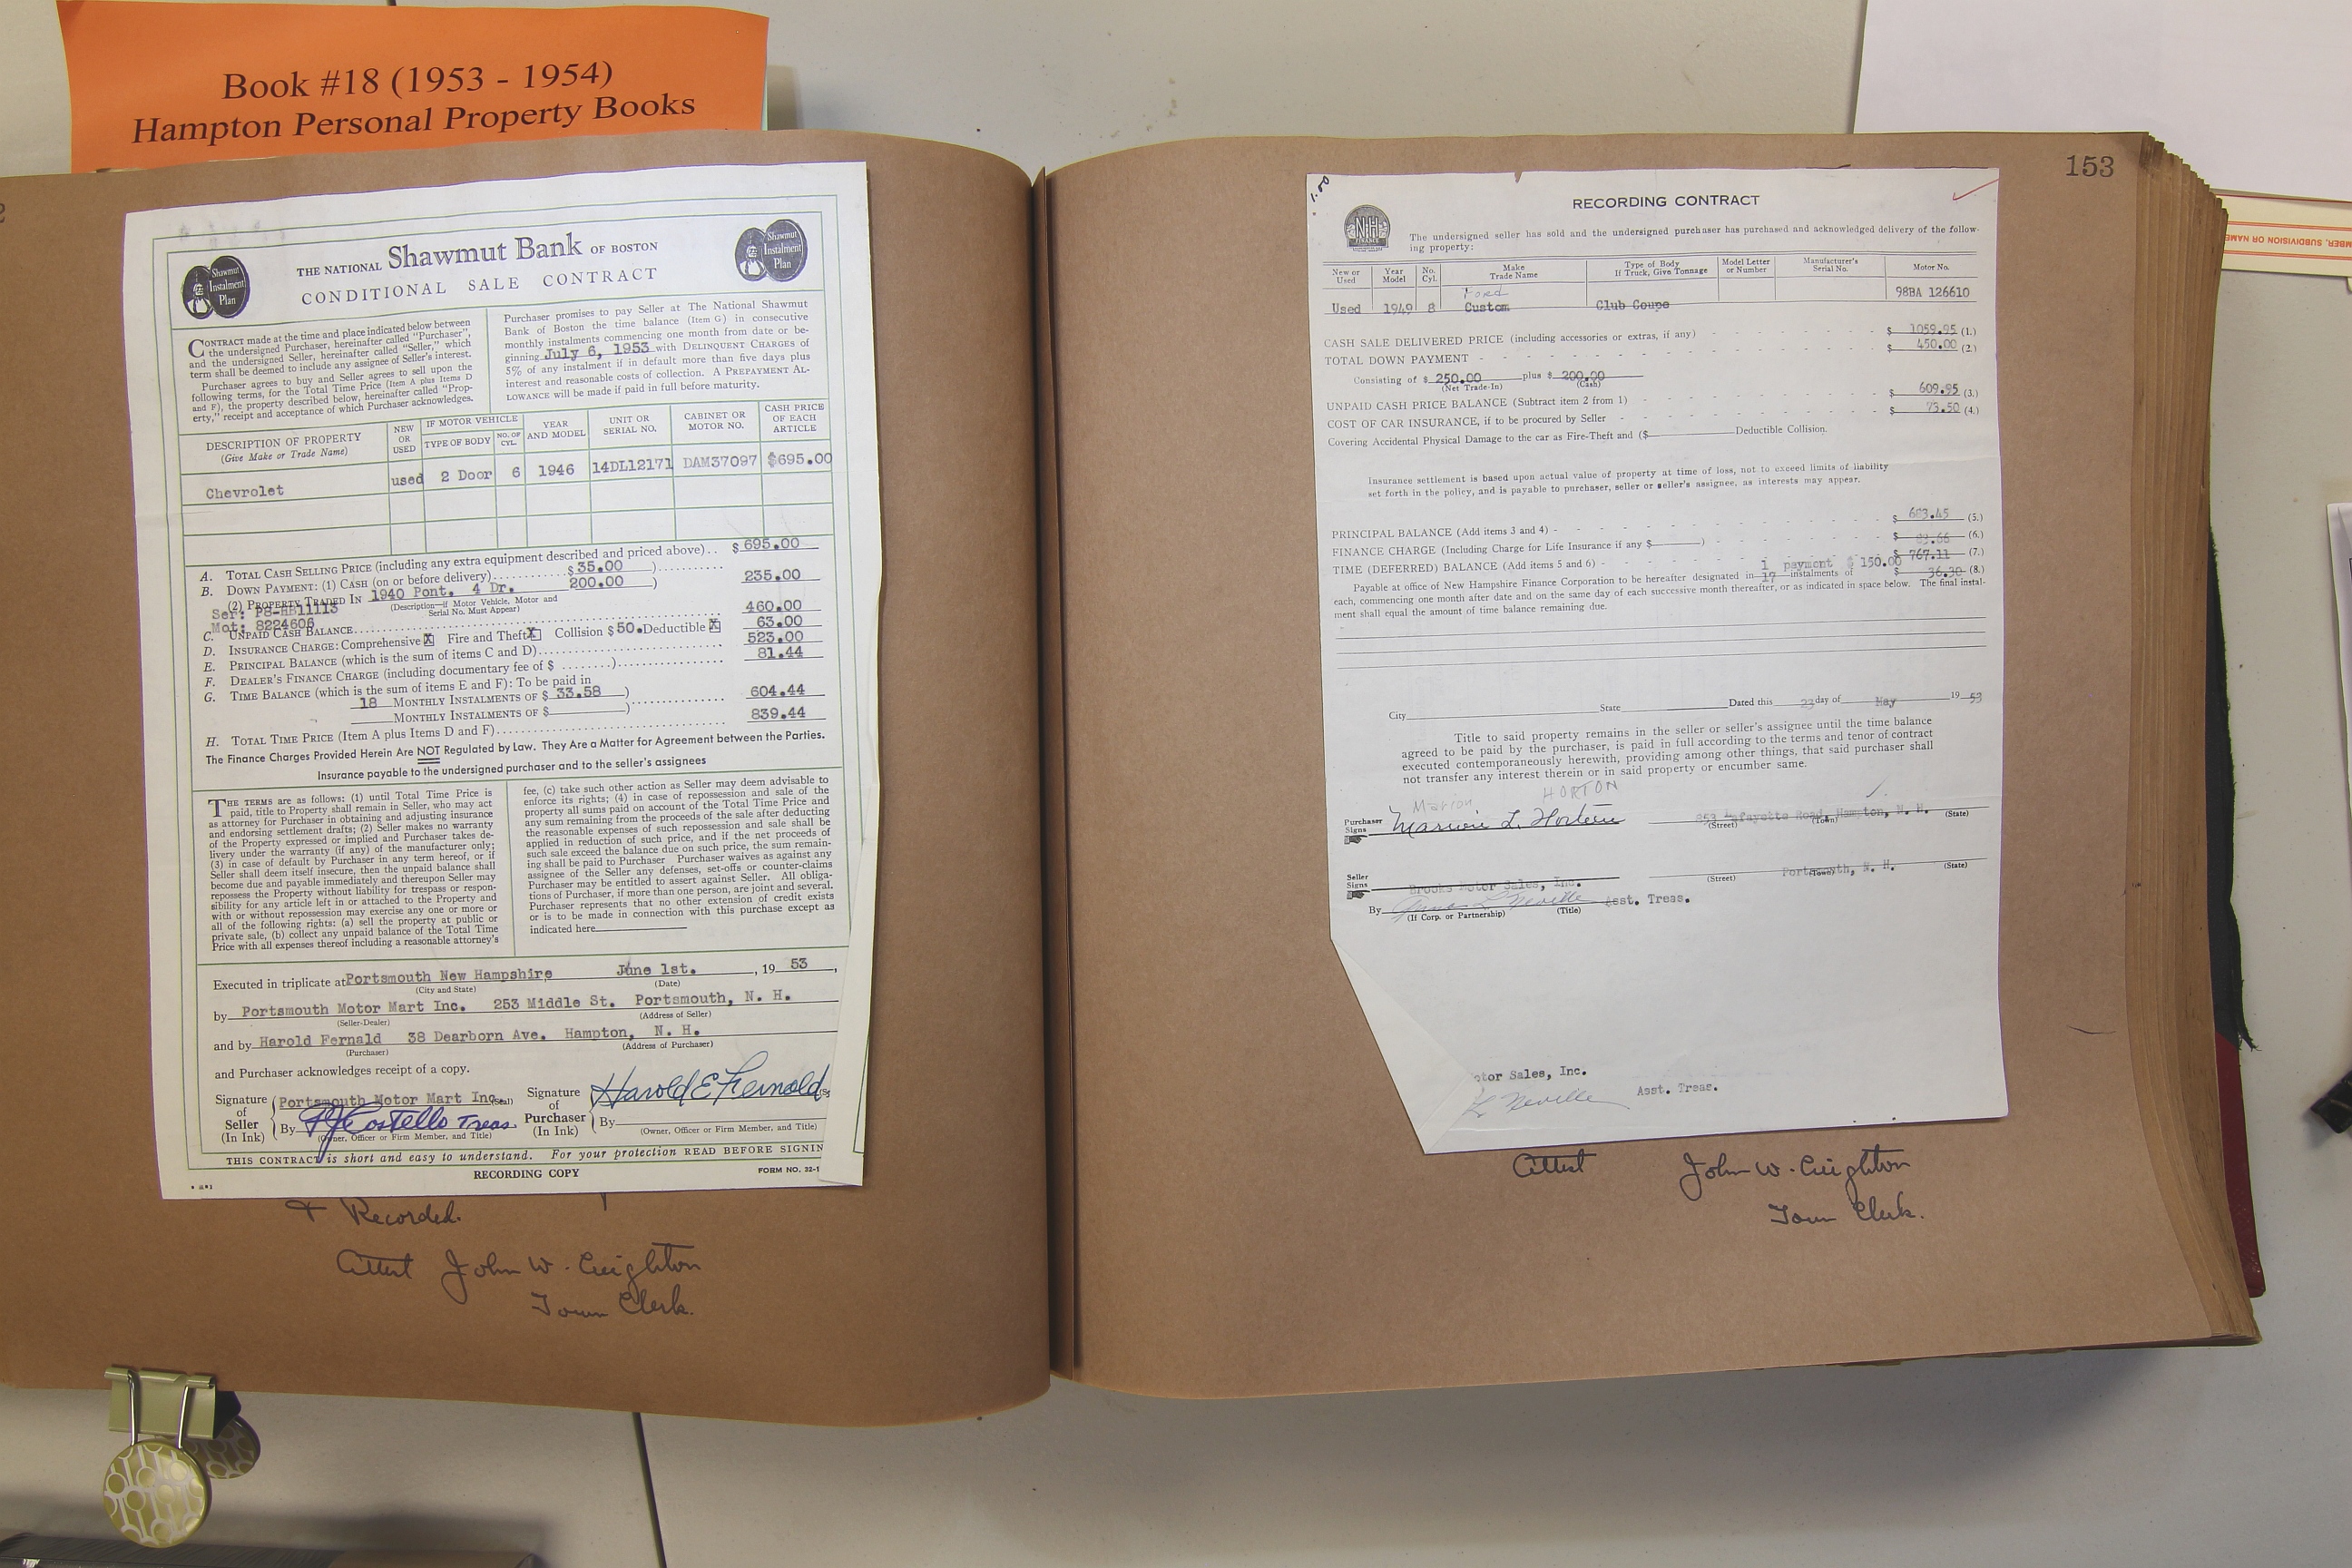 Book #18 (1953 - 1954)
Hampton Personal Property Books
Shawmut
Instalment
Plan
THE NATIONAL Shawmut Bank OF BOSTON
CONDITIONAL SALE CONTRACT
Shawmut
Instalment
Plan
CONTRACT made at the time and place indicated below between
the undersigned Purchaser, hereinafter called "Purchaser",
and the undersigned Seller, hereinafter called "Seller," which
term shall be deemed to include any assignee of Seller's interest.
Purchaser agrees to buy and Seller agrees to sell upon the
following terms, for the Total Time Price (Item A plus Items D
and F), the property described below, hereinafter called "Prop-
erty," receipt and acceptance of which Purchaser acknowledges.
Purchaser promises to pay Seller at The National Shawmut
Bank of Boston the time balance (Item G) in consecutive
monthly instalments commencing one month from date or be-
ginning July 6, 1953 with DELINQUENT CHARGES of
5% of any instalment if in default more than five days plus
interest and reasonable costs of collection. A PREPAYMENT AL-
LOWANCE will be made if paid in full before maturity.
DESCRIPTION OF PROPERTY
(Give Make or Trade Name)
NEW
OR
USED
IF MOTOR VEHICLE
TYPE OF BODY
NO. OF
CYL.
YEAR
AND MODEL
UNIT OR
SERIAL NO.
CABINET OR
MOTOR NO.
CASH PRICE
OF EACH
ARTICLE
Chevrolet used 2 Door 6 1946 14DL12171 DAM37097 $695.00
A. TOTAL CASH SELLING PRICE (including any extra equipment described and priced above).. $ 695.00
B. DOWN PAYMENT: (1) CASH (on or before delivery)..........$ 35.00 )
(2) PROPERTY TRADED IN 1940 Pont. 4 Dr. 200.00 ) 235.00
(Description—if Motor Vehicle, Motor and
Serial No. Must Appear)
Ser: P8-HB11113
Mot: 8224606
C. UNPAID CASH BALANCE 460.00
D. INSURANCE CHARGE: Comprehensive X Fire and Theft X Collision $ 50. Deductible X 63.00
E. PRINCIPAL BALANCE (which is the sum of items C and D) 523.00
F. DEALER'S FINANCE CHARGE (including documentary fee of $ ........) 81.44
G. TIME BALANCE (which is the sum of items E and F): To be paid in
18 MONTHLY INSTALMENTS OF $ 33.58 ) 604.44
MONTHLY INSTALMENTS OF $ )
H. TOTAL TIME PRICE (Item A plus Items D and F) 839.44
The Finance Charges Provided Herein Are NOT Regulated by Law. They Are a Matter for Agreement between the Parties.
Insurance payable to the undersigned purchaser and to the seller's assignees
THE TERMS are as follows: (1) until Total Time Price is
paid, title to Property shall remain in Seller, who may act
as attorney for Purchaser in obtaining and adjusting insurance
and endorsing settlement drafts; (2) Seller makes no warranty
of the Property expressed or implied and Purchaser takes de-
livery under the warranty (if any) of the manufacturer only;
(3) in case of default by Purchaser in any term hereof, or if
Seller shall deem itself insecure, then the unpaid balance shall
become due and payable immediately and thereupon Seller may
repossess the Property without liability for trespass or respon-
sibility for any article left in or attached to the Property and
with or without repossession may exercise any one or more or
all of the following rights: (a) sell the property at public or
private sale, (b) collect any unpaid balance of the Total Time
Price with all expenses thereof including a reasonable attorney's
fee, (c) take such other action as Seller may deem advisable to
enforce its rights; (4) in case of repossession and sale of the
property all sums paid on account of the Total Time Price and
any sum remaining from the proceeds of the sale after deducting
the reasonable expenses of such repossession and sale shall be
applied in reduction of such price, and if the net proceeds of
such sale exceed the balance due on such price, the sum remain-
ing shall be paid to Purchaser Purchaser waives as against any
assignee of the Seller any defenses, set-offs or counter-claims
Purchaser may be entitled to assert against Seller. All obliga-
tions of Purchaser, if more than one person, are joint and several.
Purchaser represents that no other extension of credit exists
or is to be made in connection with this purchase except as
indicated here
Executed in triplicate at Portsmouth New Hampshire June 1st. , 19 53 ,
(City and State) (Date)
by Portsmouth Motor Mart Inc. 253 Middle St. Portsmouth, N. H.
(Seller-Dealer) (Address of Seller)
and by Harold Fernald 38 Dearborn Ave. Hampton, N. H.
(Purchaser) (Address of Purchaser)
and Purchaser acknowledges receipt of a copy.
Signature
of
Seller
(In Ink)
Portsmouth Motor Mart Inc. (Seal)
By Costello Treas.
(Owner, Officer or Firm Member, and Title)
Signature
of
Purchaser
(In Ink)
Harold E Fernald
By
(Owner, Officer or Firm Member, and Title)
THIS CONTRACT is short and easy to understand. For your protection READ BEFORE SIGNIN
RECORDING COPY
FORM NO. 32-1
+ Recorded.
Attest John W. Creighton
Town Clerk.
153
1.00
RECORDING CONTRACT
NH
FINANCE
The undersigned seller has sold and the undersigned purchaser has purchased and acknowledged delivery of the follow-
ing property:
New or
Used
Year
Model
No.
Cyl.
Make
Trade Name
Type of Body
If Truck, Give Tonnage
Model Letter
or Number
Manufacturer's
Serial No.
Motor No.
Ford
Used 1949 8 Custom Club Coupe 98BA 126610
CASH SALE DELIVERED PRICE (including accessories or extras, if any) $ 1059.95 (1.)
TOTAL DOWN PAYMENT $ 450.00 (2.)
Consisting of $ 250.00 plus $ 200.00
(Net Trade-In) (Cash)
UNPAID CASH PRICE BALANCE (Subtract item 2 from 1) $ 609.95 (3.)
COST OF CAR INSURANCE, if to be procured by Seller $ 73.50 (4.)
Covering Accidental Physical Damage to the car as Fire-Theft and ($ Deductible Collision.
Insurance settlement is based upon actual value of property at time of loss, not to exceed limits of liability
set forth in the policy, and is payable to purchaser, seller or seller's assignee, as interests may appear.
PRINCIPAL BALANCE (Add items 3 and 4) $ 683.45 (5.)
FINANCE CHARGE (Including Charge for Life Insurance if any $ ) 83.66 (6.)
TIME (DEFERRED) BALANCE (Add items 5 and 6) $ 767.11 (7.)
1 payment $ 150.00
Payable at office of New Hampshire Finance Corporation to be hereafter designated in 17 instalments of $ 36.30 (8.)
each, commencing one month after date and on the same day of each successive month thereafter, or as indicated in space below. The final instal-
ment shall equal the amount of time balance remaining due.
City State Dated this 23 day of May 19 53
Title to said property remains in the seller or seller's assignee until the time balance
agreed to be paid by the purchaser, is paid in full according to the terms and tenor of contract
executed contemporaneously herewith, providing among other things, that said purchaser shall
not transfer any interest therein or in said property or encumber same.
Marion HORTON
Purchaser
Signs
Marion L. Horton 853 Lafayette Road, Hampton, N. H.
(Street) (Town) (State)
Seller
Signs
Brooks Motor Sales, Inc. Portsmouth, N. H.
(Street) (Town) (State)
By L Neville Asst. Treas.
(If Corp. or Partnership) (Title)
otor Sales, Inc.
L Neville Asst. Treas.
Attest John W. Creighton
Town Clerk.